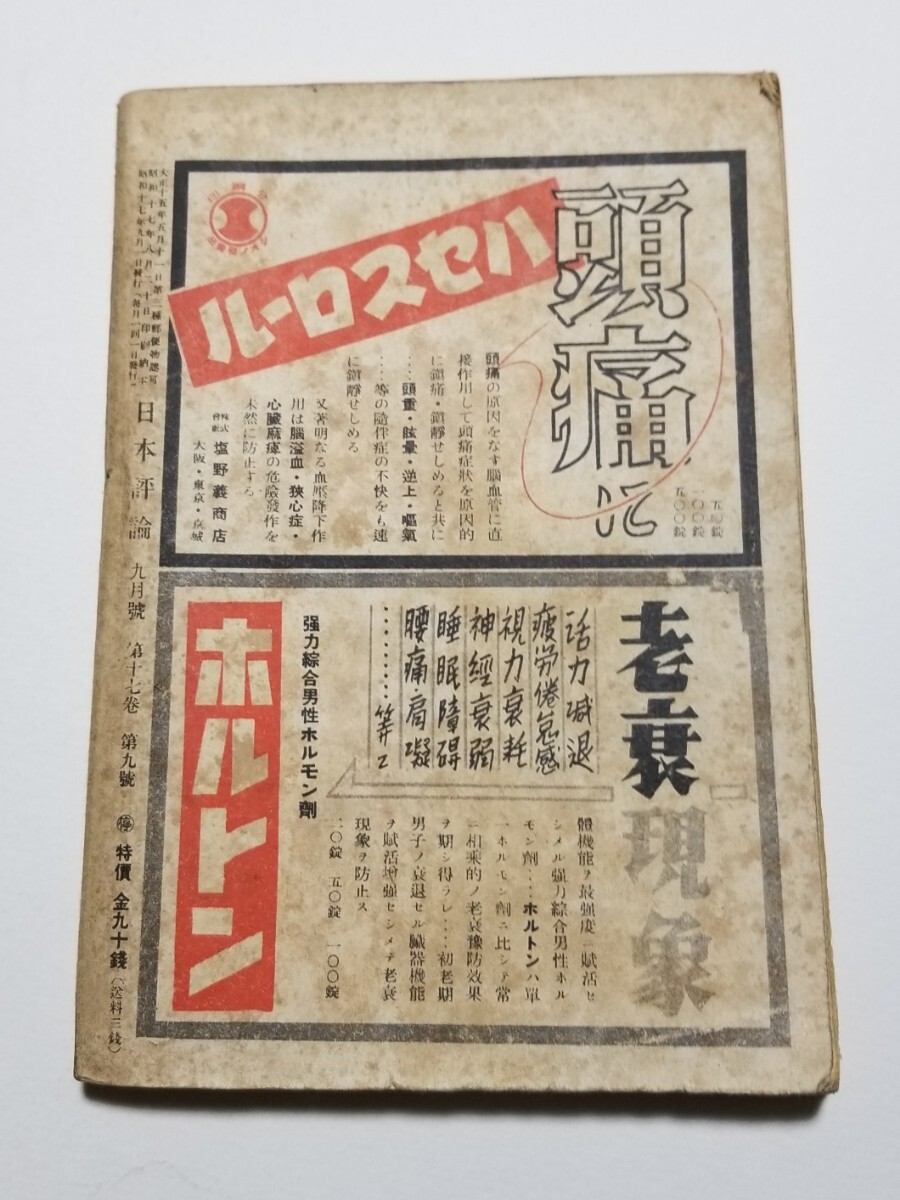 大正十五年五月十一日第三種郵便物認可
昭和十七年八月二十日印刷納本
昭和十七年九月一日發行(毎月一回一日發行)
日本評論 九月號 第十七卷 第九號 ㊡ 特價 金九十錢(送料三錢)
頭痛に
ハセスロール
五〇錠
一〇〇錠
五〇〇錠
頭痛の原因をなす腦血管に直
接作用して頭痛症狀を原因的
に鎮痛・鎮靜せしめると共に
…頭重・眩暈・逆上・嘔氣
…等の隨伴症の不快をも速
に鎮靜せしめる
又著明なる血壓降下作
用は腦溢血・狹心症・
心臟麻痺の危險發作を
未然に防止する
株式會社 塩野義商店
大阪・東京・京城
老衰現象
活力減退
疲労倦怠感
視力衰耗
神經衰弱
睡眠障碍
腰痛・肩凝
………等ニ
强力綜合男性ホルモン劑
ホルトン
體機能ヲ最强度ニ賦活セ
シメル强力綜合男性ホル
モン劑……ホルトンハ單
一ホルモン劑ニ比シテ常
ニ相乘的ノ老衰豫防效果
ヲ期シ得ラレ……初老期
男子ノ衰退セル臟器機能
ヲ賦活增强セシメテ老衰
現象ヲ防止ス
二〇錠 五〇錠 一〇〇錠